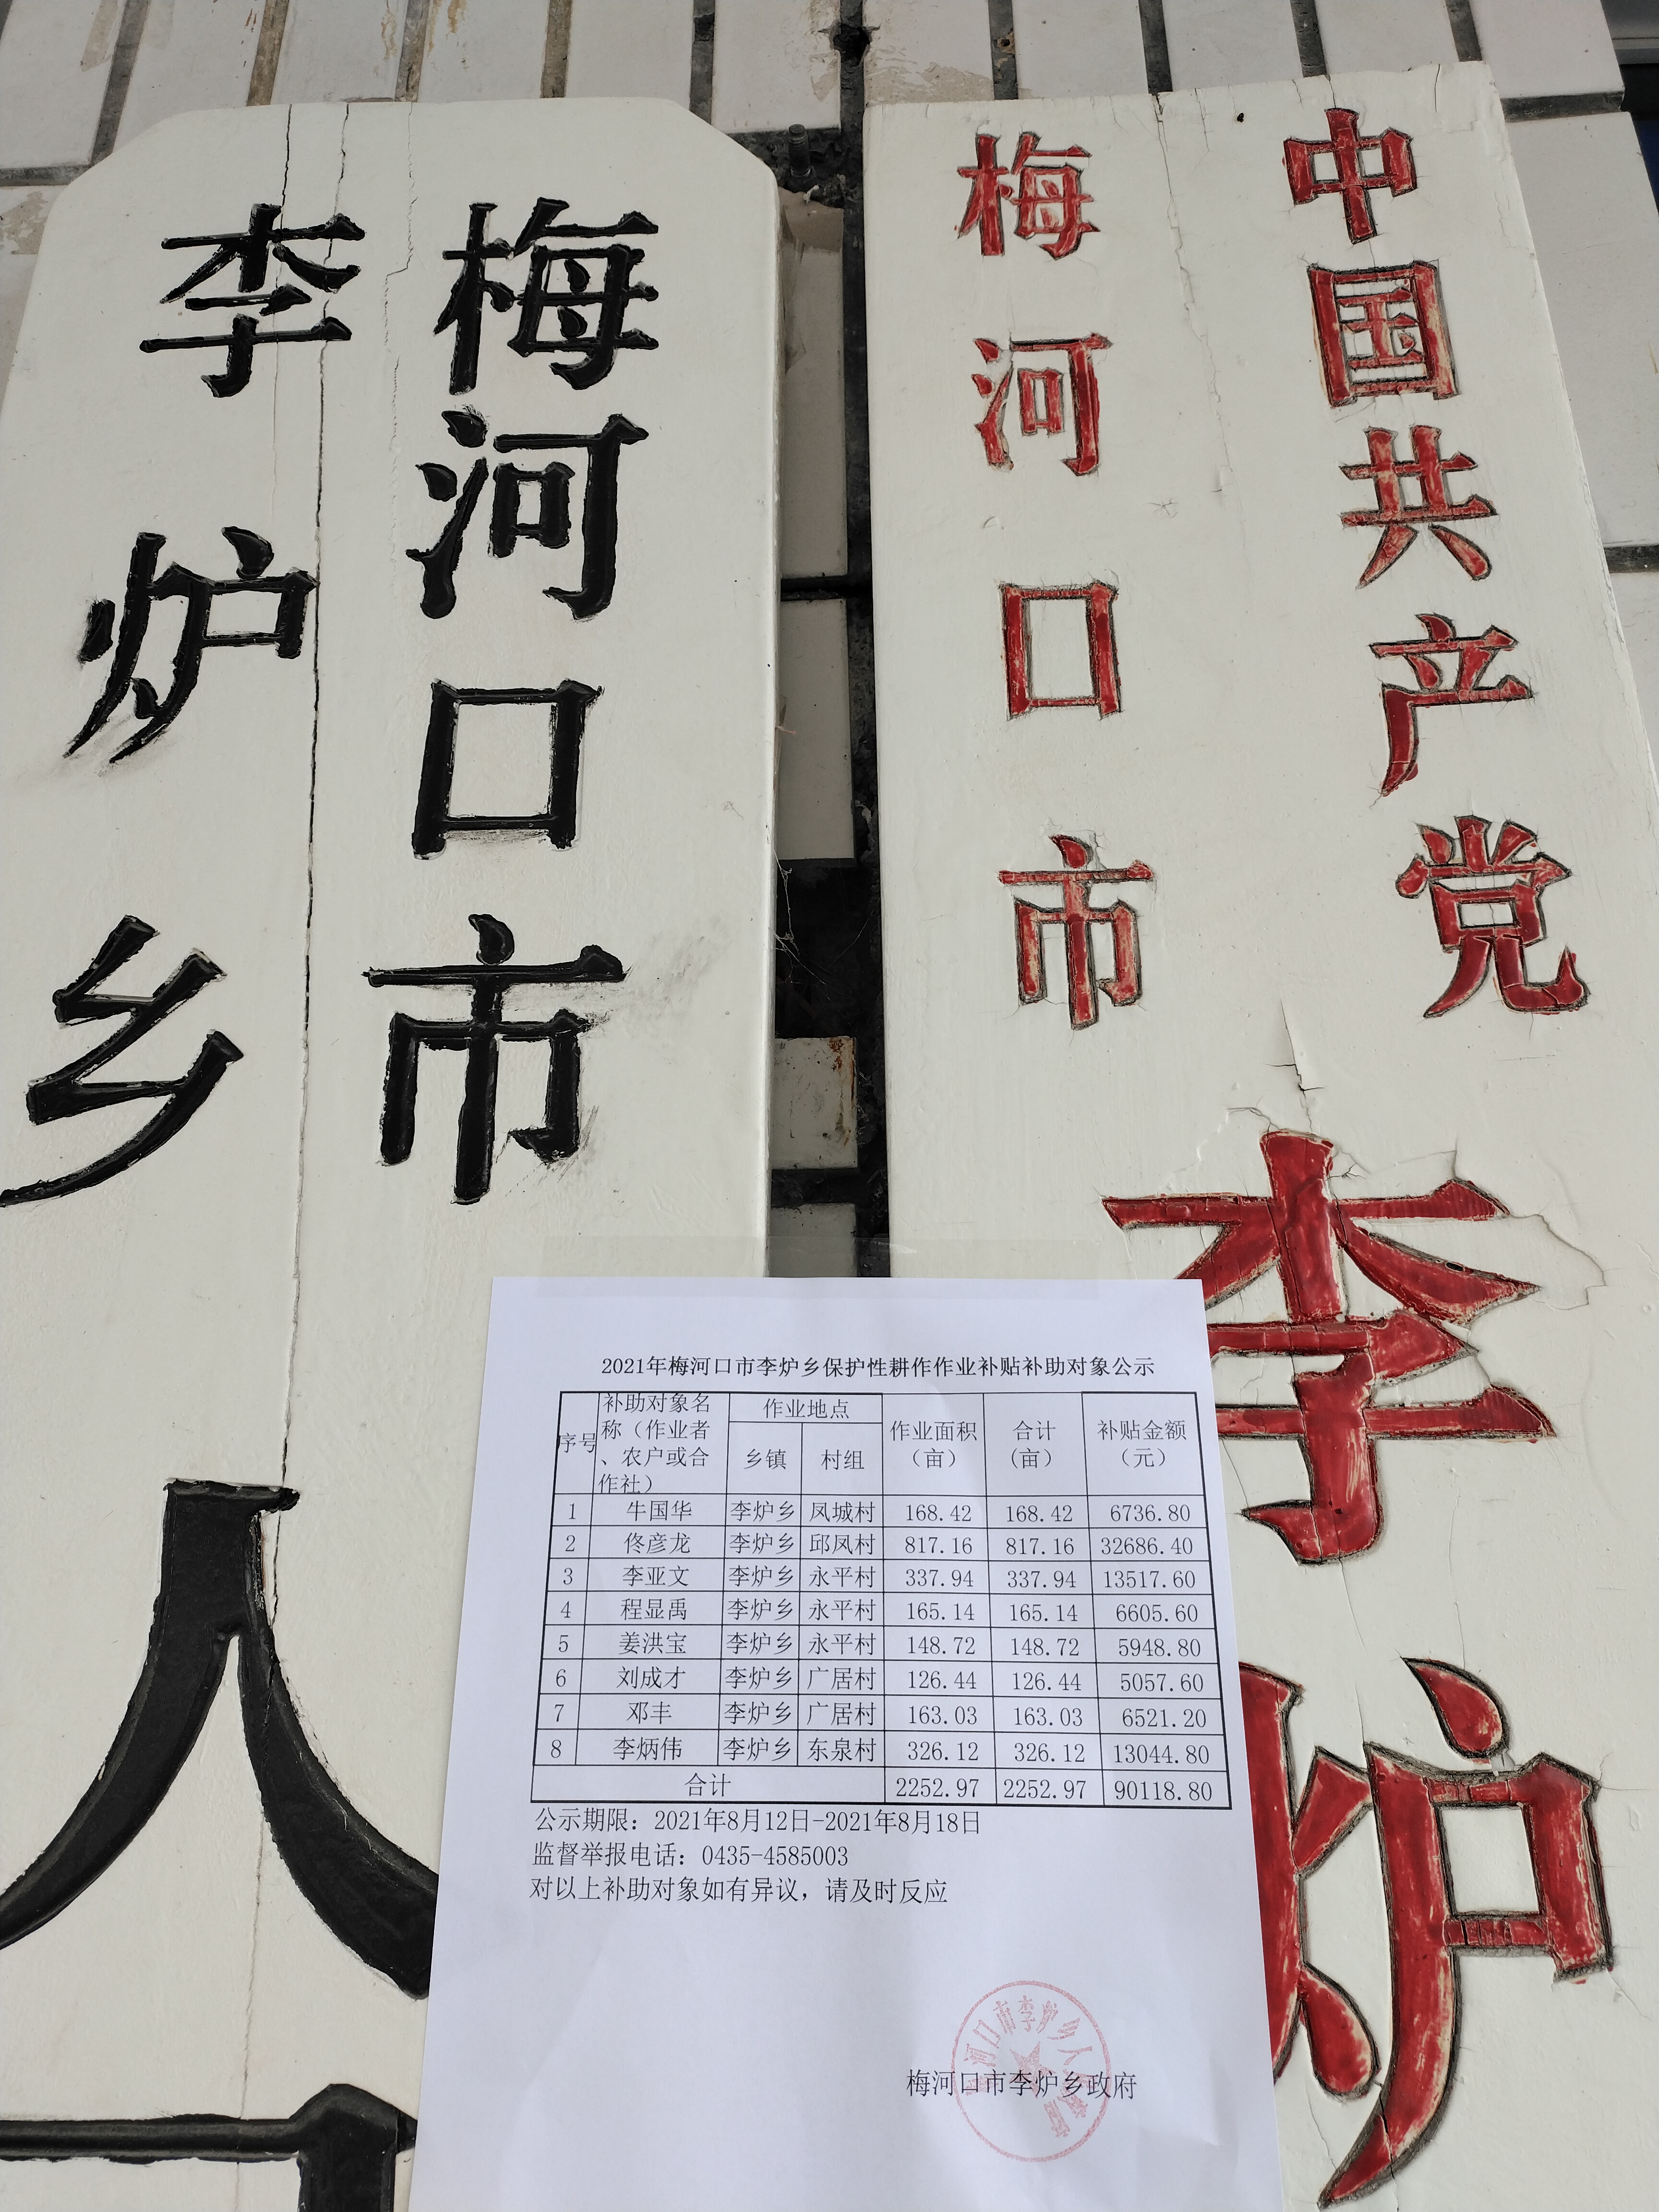 中国共产党
梅河口市
李炉
梅河口市
李炉乡
人
2021年梅河口市李炉乡保护性耕作作业补贴补助对象公示
序号 补助对象名称（作业者、农户或合作社） 作业地点 作业面积（亩） 合计（亩） 补贴金额（元）
乡镇 村组
1 牛国华 李炉乡 凤城村 168.42 168.42 6736.80
2 佟彦龙 李炉乡 邱凤村 817.16 817.16 32686.40
3 李亚文 李炉乡 永平村 337.94 337.94 13517.60
4 程显禹 李炉乡 永平村 165.14 165.14 6605.60
5 姜洪宝 李炉乡 永平村 148.72 148.72 5948.80
6 刘成才 李炉乡 广居村 126.44 126.44 5057.60
7 邓丰 李炉乡 广居村 163.03 163.03 6521.20
8 李炳伟 李炉乡 东泉村 326.12 326.12 13044.80
合计 2252.97 2252.97 90118.80
公示期限：2021年8月12日-2021年8月18日
监督举报电话：0435-4585003
对以上补助对象如有异议，请及时反应
梅河口市李炉乡政府